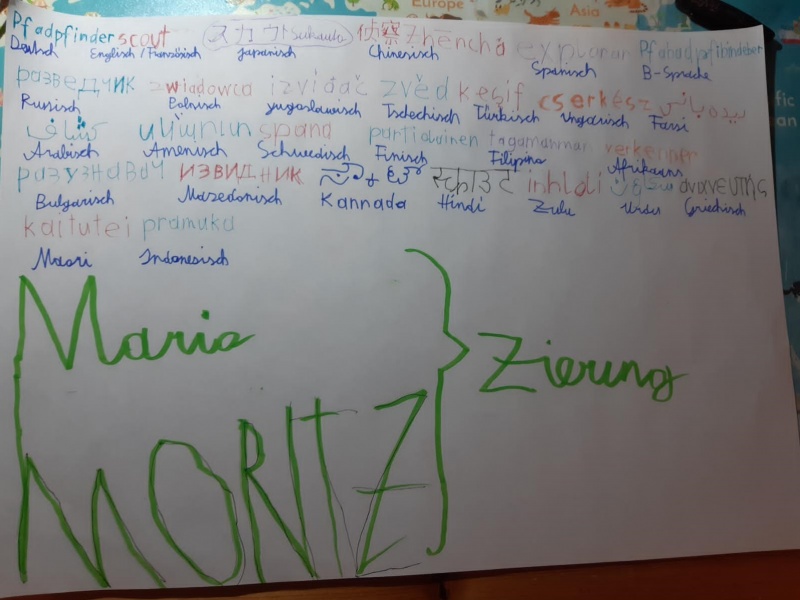 Europe
Asia
Pfadpfinder scout スカウト 偵察 Zhēnchá explorar
Deutsch Englisch/Französisch Japanisch Chinesisch Spanisch B-Sprache
разведчик zwiadowca izviđač zvěd keşif cserkész
Russisch Polnisch yugoslawisch Tschechisch Türkisch Ungarisch Farsi
كشاف spana partiolainen tagamanman verkenner
Arabisch Amenisch Schwedisch Finisch Filipino Afrikaans
разузнавач извидник स्काउट inhloli ανιχνευτής
Bulgarisch Mazedonisch Kannada Hindi Zulu Urdu Griechisch
kaitutei pramuka
Maori Indonesisch
Maria
MORITZ
Zierung